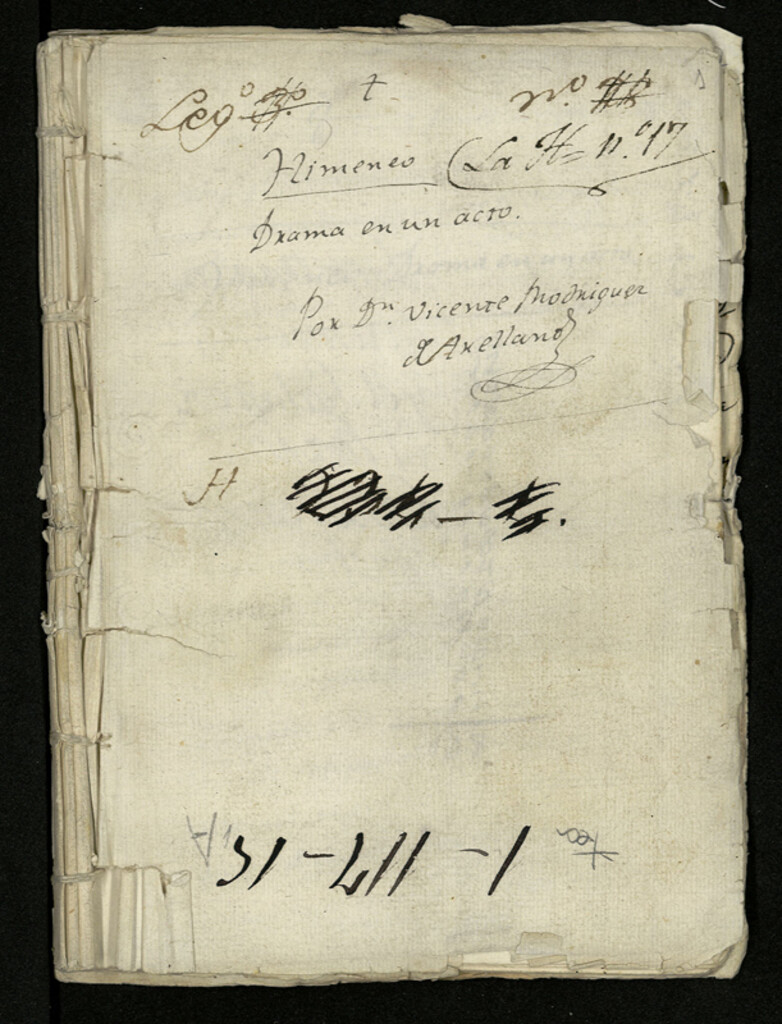 Leg.º † nº
Himeneo (La H= n.º 17
Drama en un acto.
Por Dn. Vicente Rodriguez
d'Arellano
H
Tea 1-117-15, A